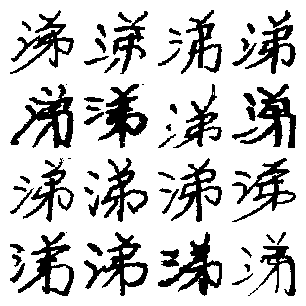 涕涕涕涕
涕涕涕涕
涕涕涕涕
涕涕涕涕